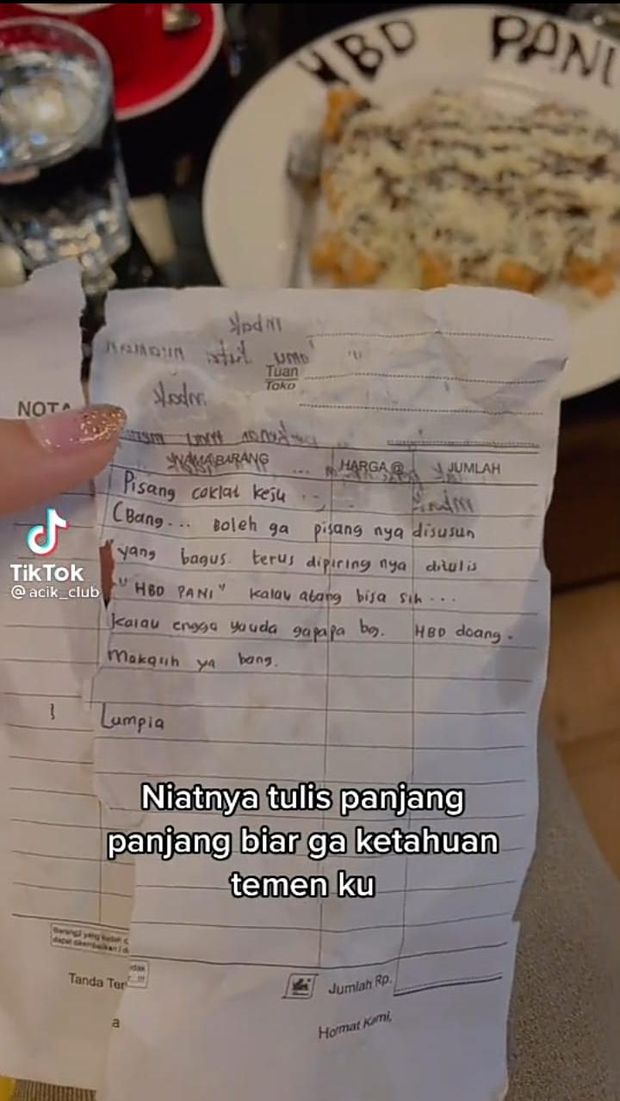 HBD PANI
mbak
mbak
Tuan
Toko
NOTA
NAMA BARANG HARGA @ JUMLAH
Pisang coklat keju
(Bang... Boleh ga pisang nya disusun
yang bagus. terus dipiring nya ditulis
"HBD PANI" kalau abang bisa sih...
kalau engga yauda gapapa bg. HBD doang.
Makasih ya bang.
Lumpia
TikTok
@acik_club
Niatnya tulis panjang
panjang biar ga ketahuan
temen ku
Jumlah Rp.
Tanda Ter
Hormat Kami,